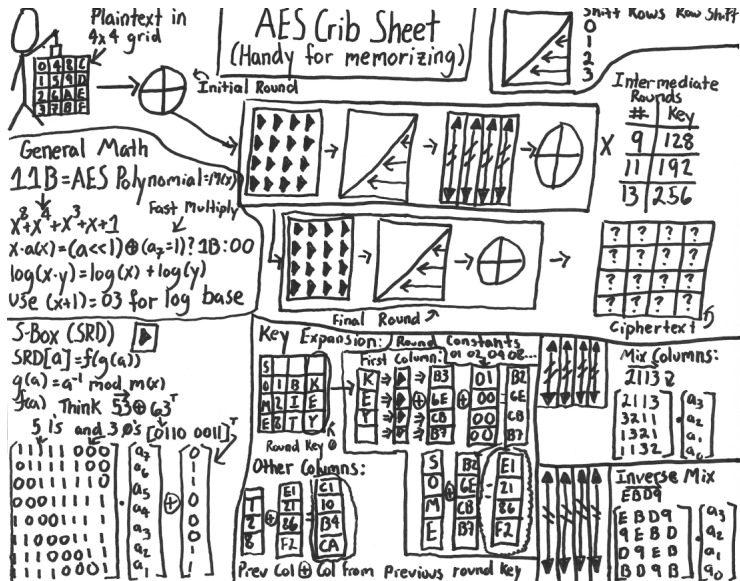 Plaintext in
4x4 grid
0 4 8 C
1 5 9 D
2 6 A E
3 7 B F
Initial Round
AES Crib Sheet
(Handy for memorizing)
Shift Rows Row Shift
0
1
2
3
Intermediate
Rounds
# Key
9 128
11 192
13 256
X
General Math
11B=AES Polynomial=M(x)
x⁸+x⁴+x³+x+1
Fast Multiply
x·a(x)=(a<<1)⊕(a₇=1)?1B:00
log(x·y)=log(x)+log(y)
Use (x+1)=03 for log base
Final Round
? ? ? ?
? ? ? ?
? ? ? ?
? ? ? ?
Ciphertext
S-Box (SRD)
SRD[a]=f(g(a))
g(a)=a⁻¹ mod m(x)
f(a) Think 53⊕63ᵀ
5 1's and 3 0's [0110 0011]ᵀ
1 1 1 1 1 0 0 0
0 1 1 1 1 1 0 0
0 0 1 1 1 1 1 0
0 0 0 1 1 1 1 1
1 0 0 0 1 1 1 1
1 1 0 0 0 1 1 1
1 1 1 0 0 0 1 1
1 1 1 1 0 0 0 1
a₇
a₆
a₅
a₄
a₃
a₂
a₁
⊕
0
1
1
0
0
0
1
1
Key Expansion:
Round Constants
01 02 04 08...
First Column:
S
O 1 B K
M 2 I E
E 8 T Y
Round Key 0
K B3 01 B2
E ⊕ 6E ⊕ 00 = 6E
Y CB 00 CB
B7 00 B7
Other Columns:
E1 C1
T 21 10
2 ⊕ 86 = B4
8 F2 CA
S B2 E1
O 6E 21
M ⊕ CB = 86
E B7 F2
Prev Col ⊕ Col from Previous round key
Mix Columns:
2113
2 1 1 3
3 2 1 1
1 3 2 1
1 1 3 2
a₃
a₂
a₁
a₀
Inverse Mix
EBD9
E B D 9
9 E B D
D 9 E B
B D 9 E
a₃
a₂
a₁
a₀